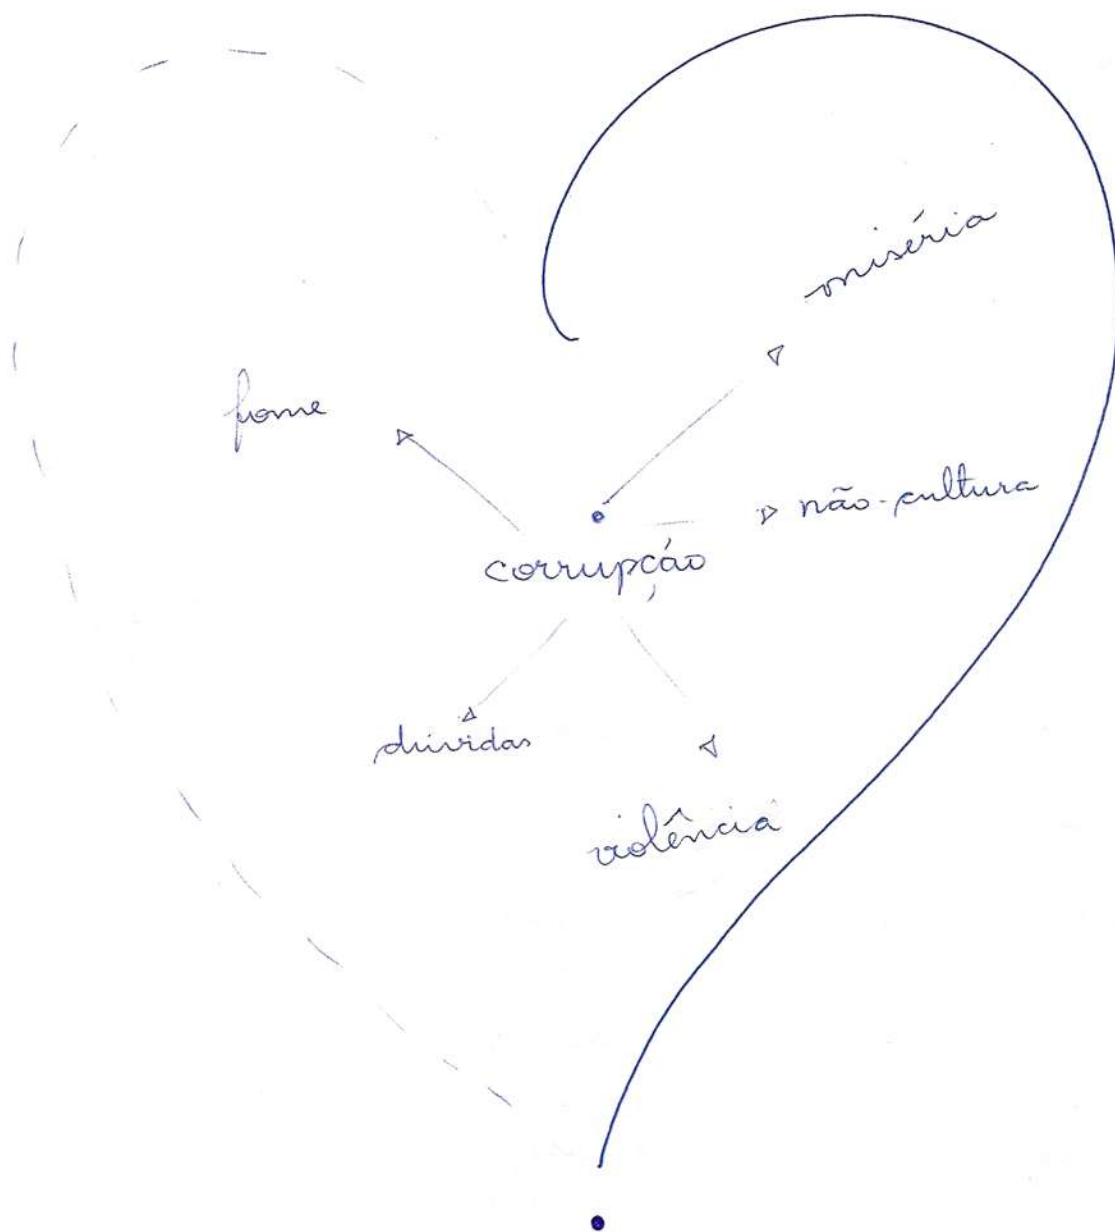 miséria
fome
não-cultura
corrupção
dúvidas
violência